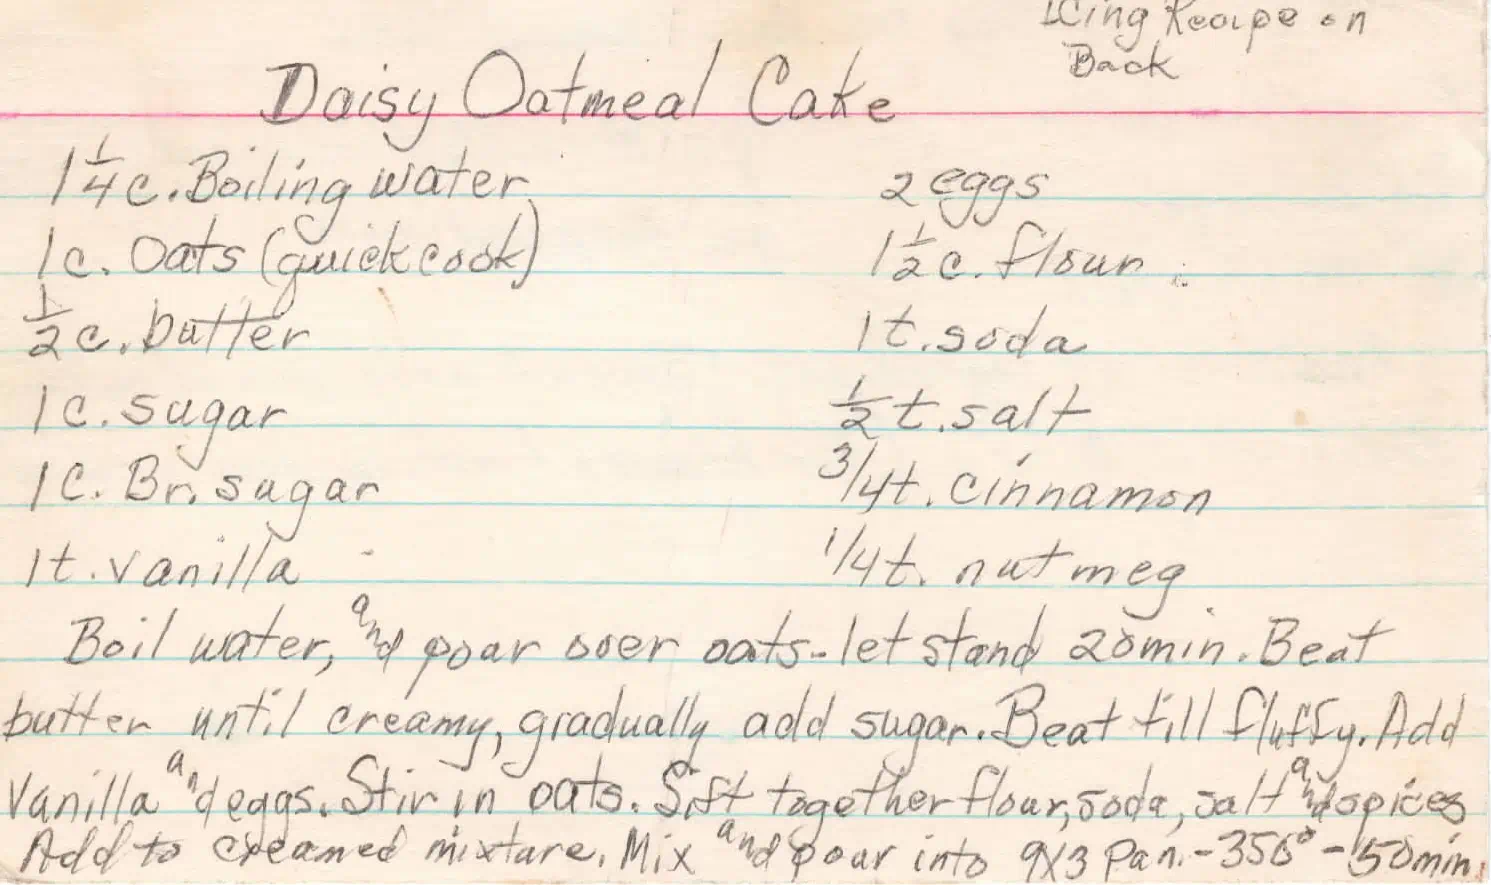 Icing Recipe on
Back
Daisy Oatmeal Cake
1 1/4 c. Boiling water
2 eggs
1c. Oats (quick cook)
1 1/2 c. flour
1/2 c. butter
1 t. soda
1 c. sugar
1/2 t. salt
1 C. Br. sugar
3/4 t. cinnamon
1 t. vanilla
1/4 t. nutmeg
Boil water, and pour over oats - let stand 20 min. Beat
butter until creamy, gradually add sugar. Beat till fluffy. Add
Vanilla and eggs. Stir in oats. Sift together flour, soda, salt and spices
Add to creamed mixture. Mix and pour into 9X3 Pan. - 350° - 50 min.